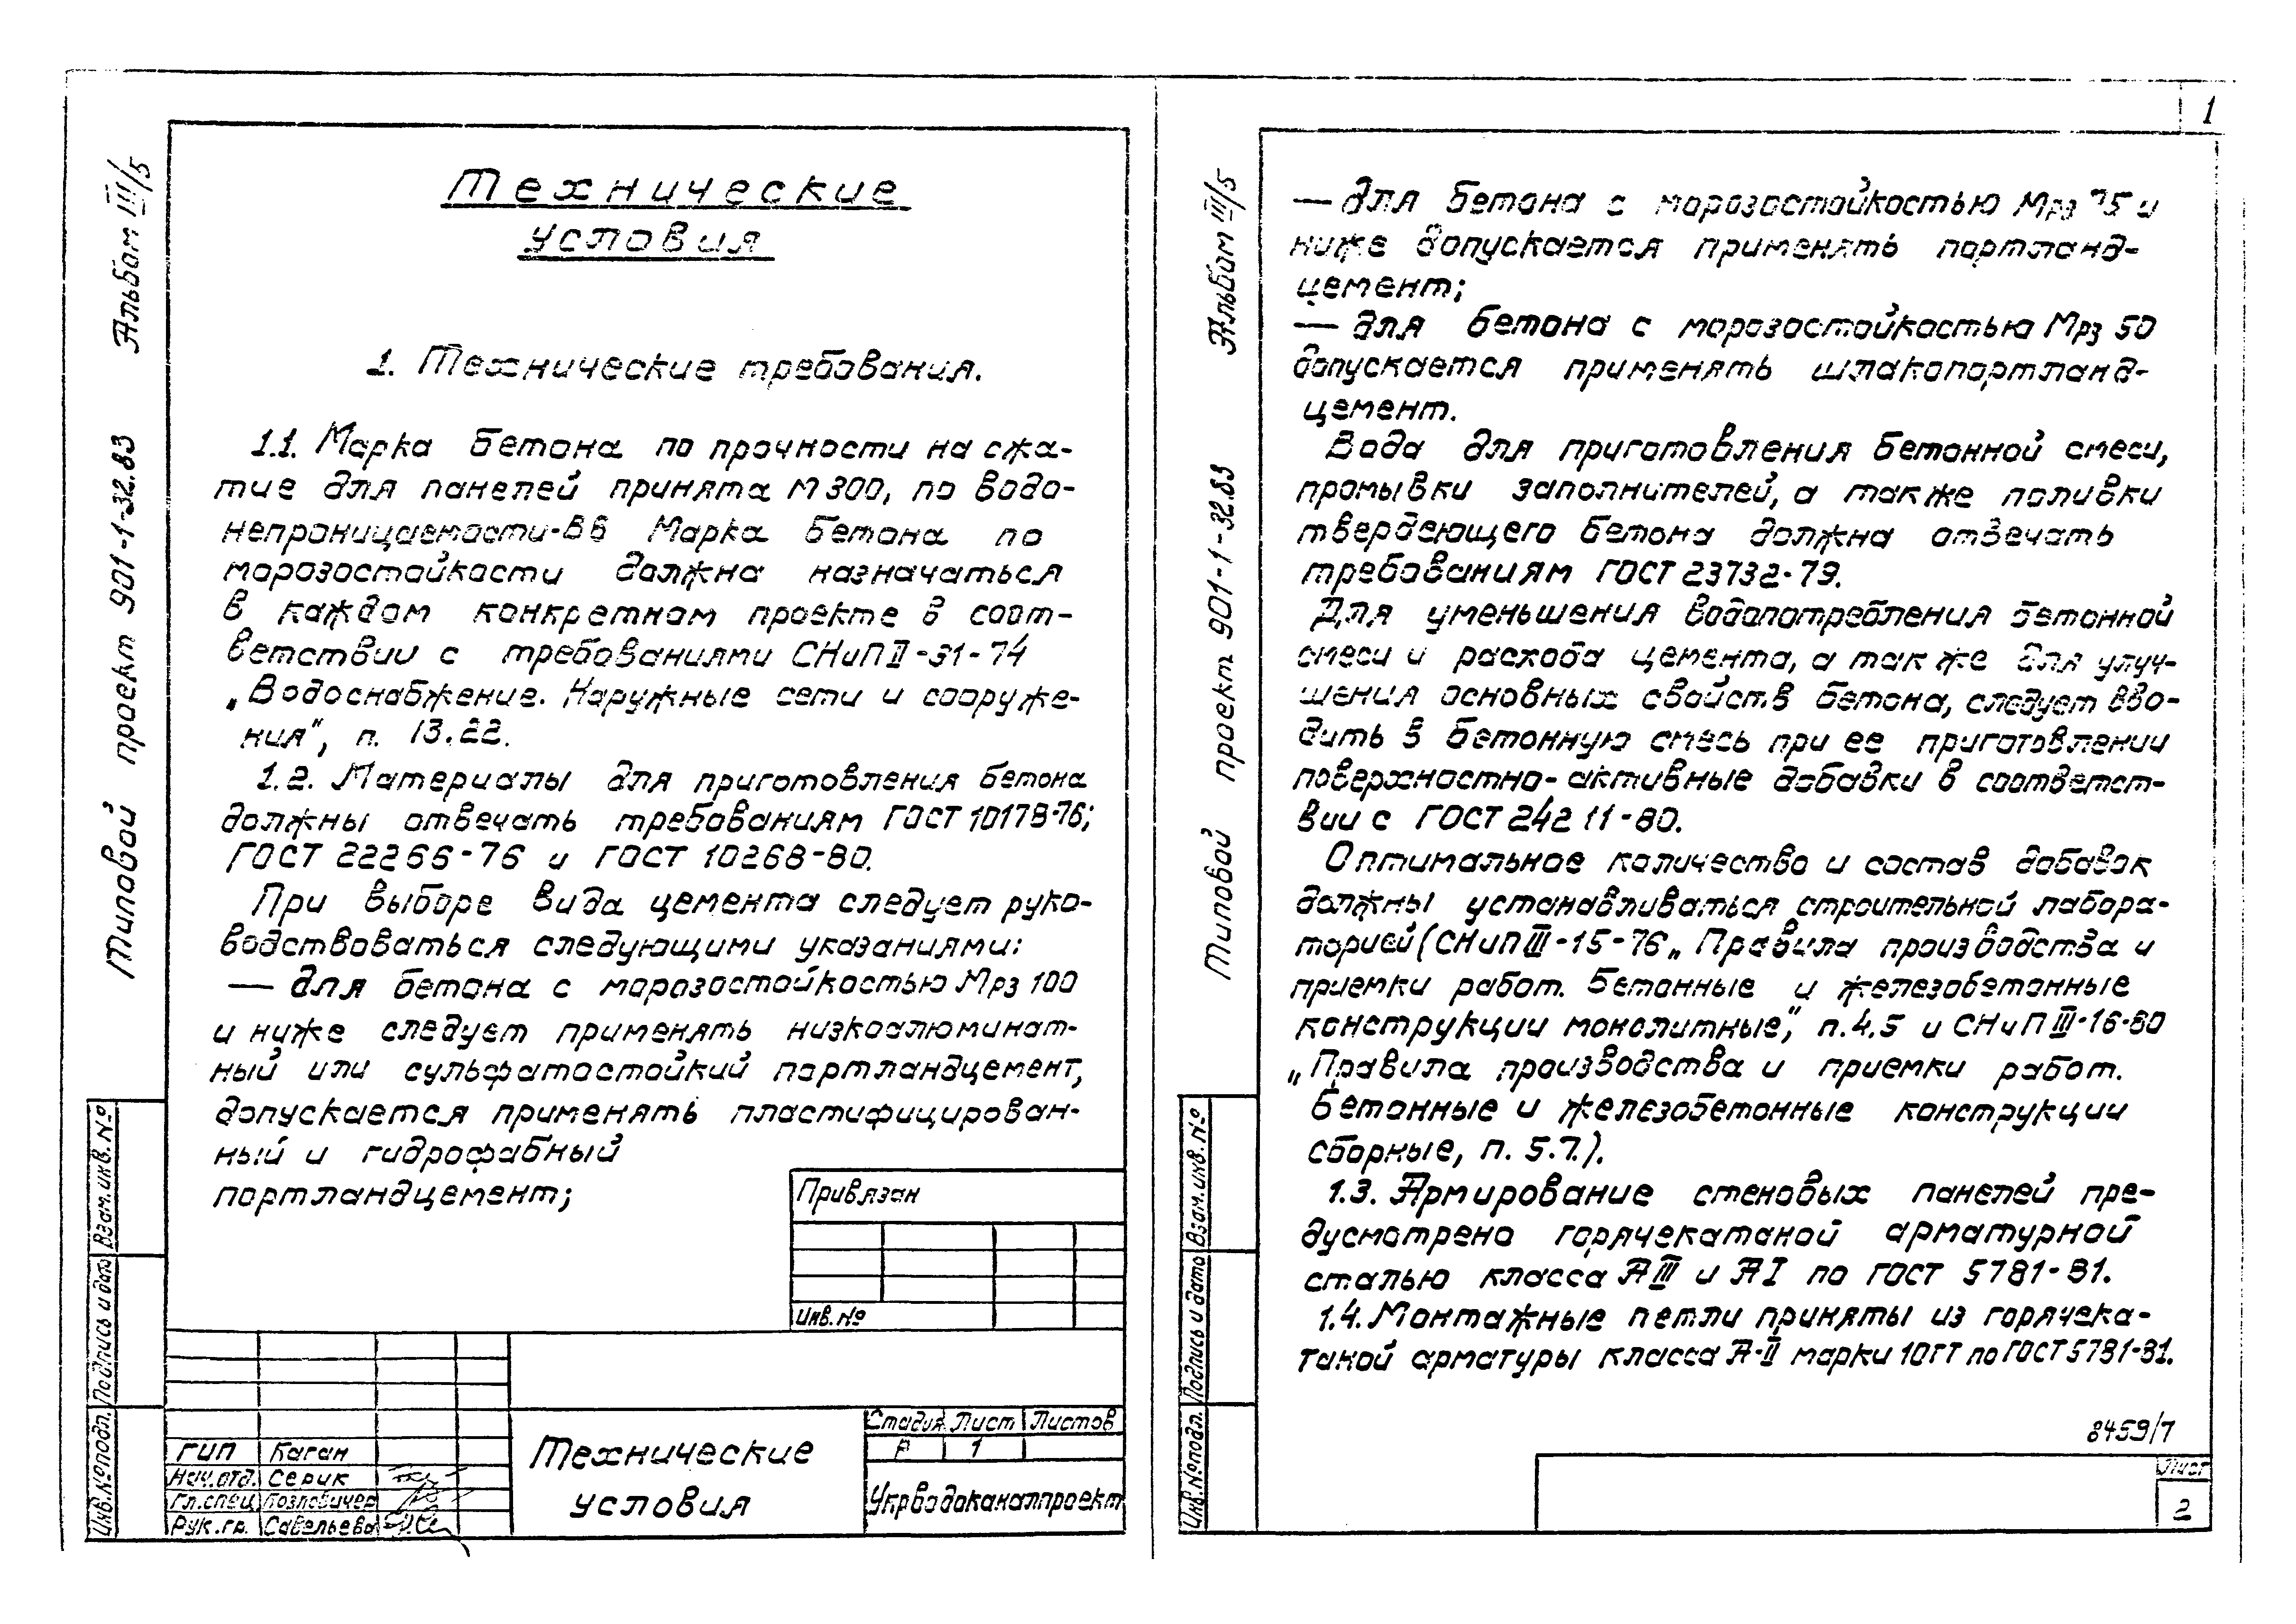 Альбом III/5
Типовой проект 901-1-32.83
Технические
условия
1. Технические требования.
1.1. Марка бетона по прочности на сжа-
тие для панелей принята М300, по водо-
непроницаемости-В6 Марка бетона по
морозостойкости должна назначаться
в каждом конкретном проекте в соот-
ветствии с требованиями СНиП II-31-74
„Водоснабжение. Наружные сети и сооруже-
ния", п. 13.22.
1.2. Материалы для приготовления бетона
должны отвечать требованиям ГОСТ 10178-76;
ГОСТ 22266-76 и ГОСТ 10268-80.
При выборе вида цемента следует руко-
водствоваться следующими указаниями:
— для бетона с морозостойкостью Мрз 100
и ниже следует применять низкоалюминат-
ный или сульфатостойкий портландцемент,
допускается применять пластифицирован-
ный и гидрофабный
портландцемент;
Привязан
Инв. №
Взам. инв. №
Подпись и дата
Инв. № подл.
ГИП Каган
Нач. отд. Серик
Гл. спец
Рук. гр. Савельева
Технические
условия
Стадия Лист Листов
Р 1
Укрводоканалпроект
1
Альбом III/5
Типовой проект 901-1-32.83
— для бетона с морозостойкостью Мрз 75 и
ниже допускается применять портланд-
цемент;
— для бетона с морозостойкостью Мрз 50
допускается применять шлакопортланд-
цемент.
Вода для приготовления бетонной смеси,
промывки заполнителей, а также поливки
твердеющего бетона должна отвечать
требованиям ГОСТ 23732-79.
Для уменьшения водопотребления бетонной
смеси и расхода цемента, а также для улуч-
шения основных свойств бетона, следует вво-
дить в бетонную смесь при ее приготовлении
поверхностно-активные добавки в соответст-
вии с ГОСТ 24211-80.
Оптимальное количество и состав добавок
должны устанавливаться строительной лабора-
торией (СНиП III-15-76 „Правила производства и
приемки работ. Бетонные и железобетонные
конструкции монолитные", п. 4.5 и СНиП III-16-80
„Правила производства и приемки работ.
Бетонные и железобетонные конструкции
сборные, п. 5.7.).
1.3. Армирование стеновых панелей пре-
дусмотрено горячекатаной арматурной
сталью класса А III и А I по ГОСТ 5781-81.
1.4. Монтажные петли приняты из горячека-
таной арматуры класса А-II марки 10ГТ по ГОСТ 5781-81.
8459/7
Взам. инв. №
Подпись и дата
Инв. № подл.
Лист
2